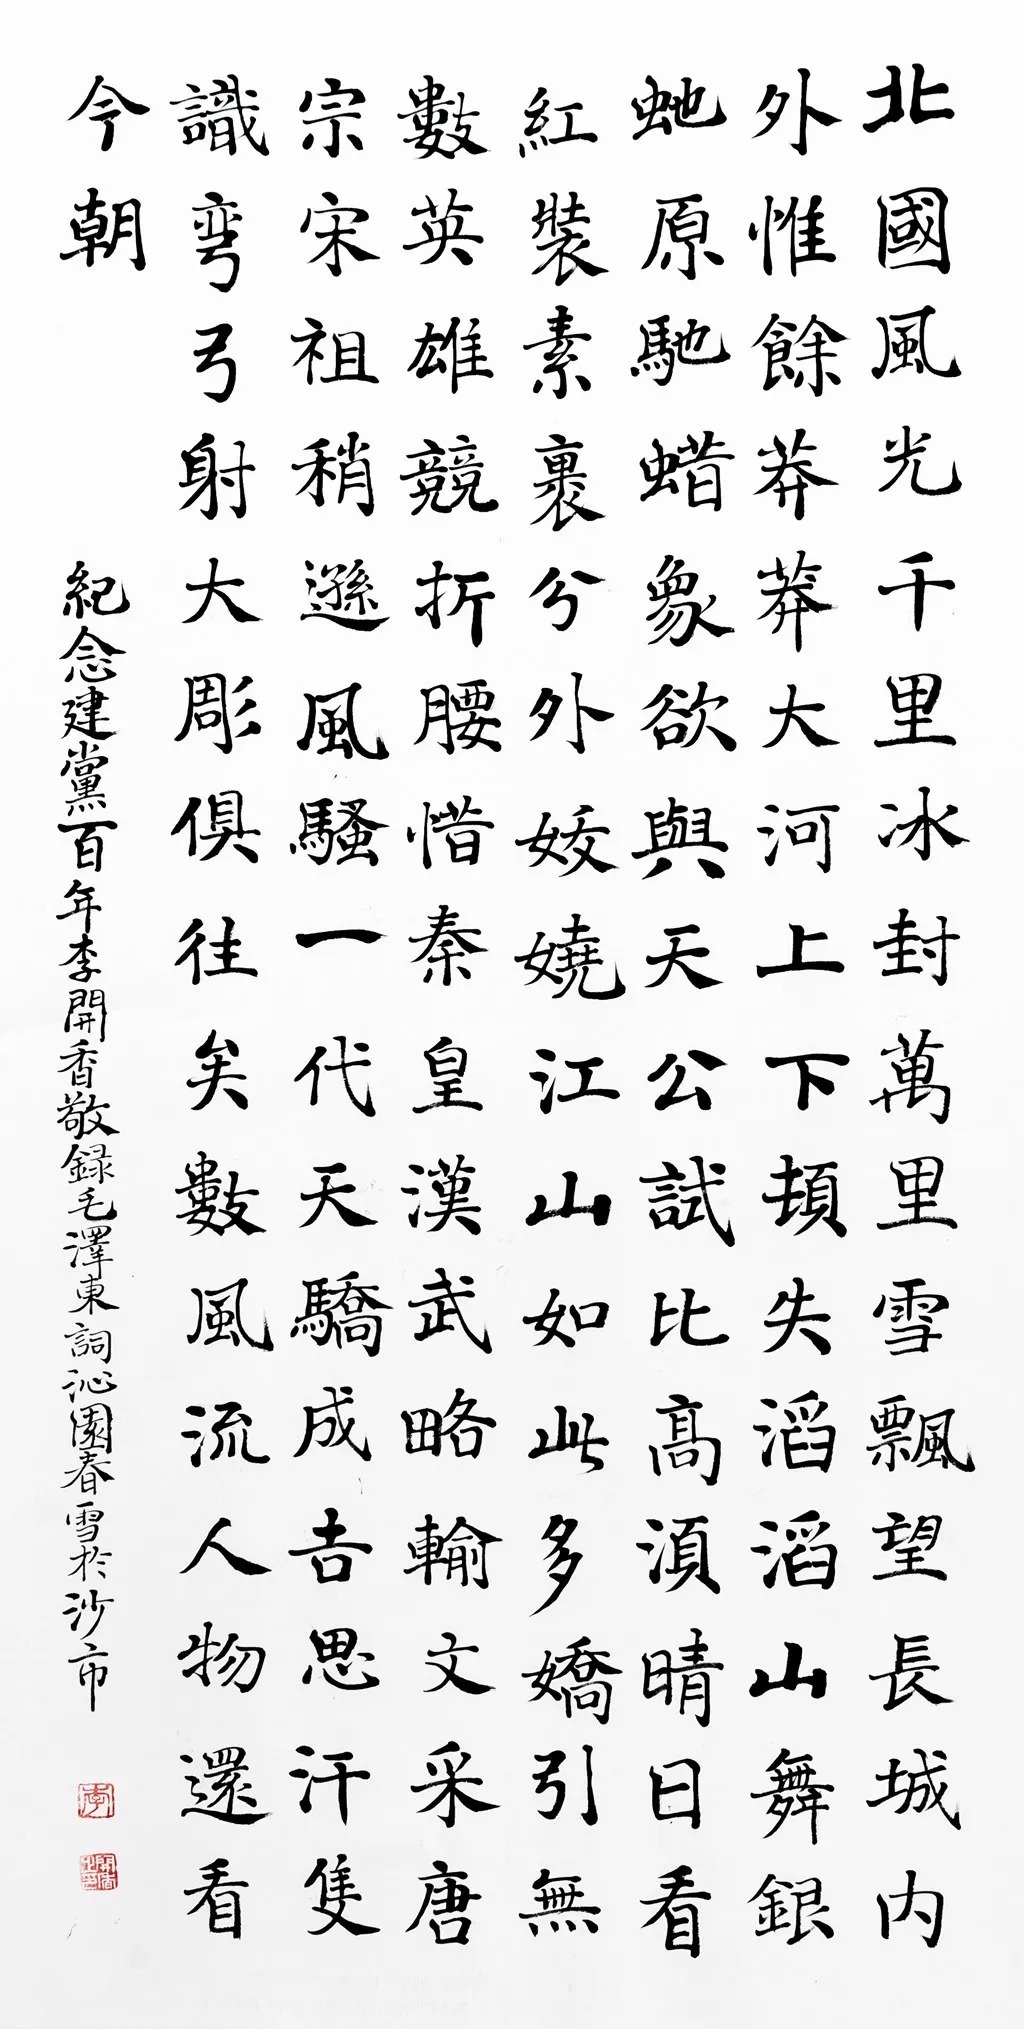 北國風光千里冰封萬里雪飄望長城内
外惟餘莽莽大河上下頓失滔滔山舞銀
虵原馳蜡象欲與天公試比高湏晴日看
紅裝素裹兮外妖嬈江山如此多嬌引無
數英雄競折腰惜秦皇漢武略輸文采唐
宗宋祖稍遜風騷一代天驕成吉思汗隻
識彎弓射大彫俱往矣數風流人物還看
今朝
紀念建黨百年李開香敬録毛澤東詞沁園春雪於沙市
李
開香之印